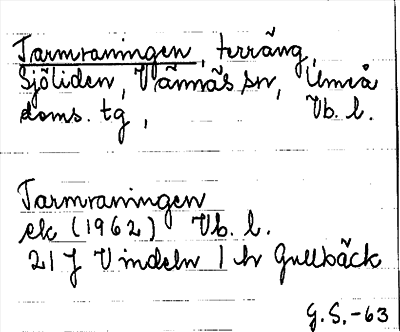 Tarmraningen, terräng,
Sjöliden, Vännäs sn, Umeå
doms. tg, Vb. l.
Tarmraningen
ek (1962) Vb. l.
21 J Vindeln 1 hr Gullbäck
G. S. -63